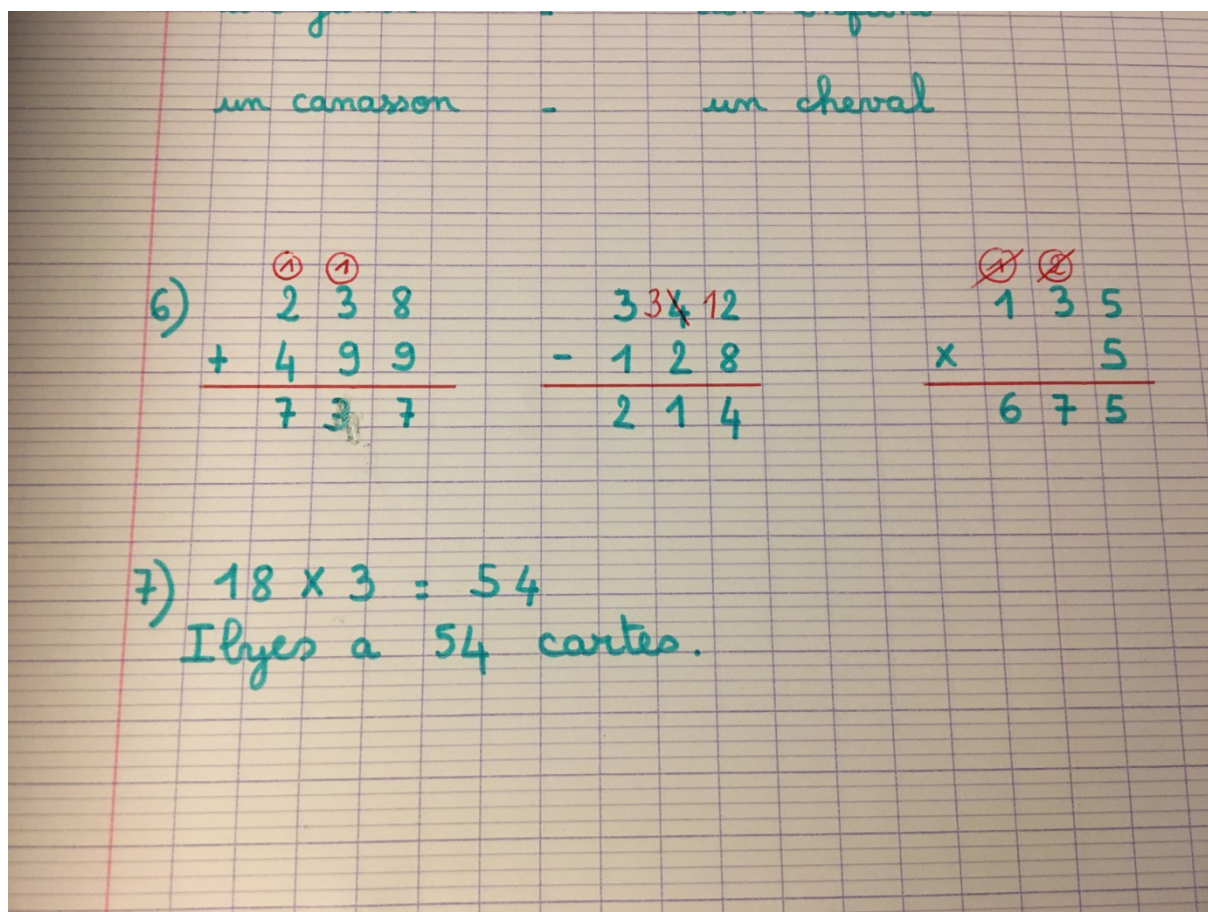 un canasson - un cheval
① ①
6) 2 3 8
+ 4 9 9
7 3 7
3 3 4 12
- 1 2 8
2 1 4
① ②
1 3 5
x 5
6 7 5
7) 18 x 3 = 54
Ilyes a 54 cartes.